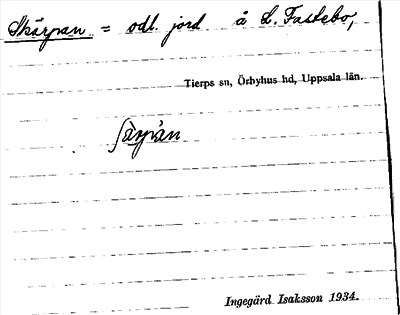 Skärpan = odl. jord å L. Fastebo,
Tierps sn, Örbyhus hd, Uppsala län.
ʃàrpàn
Ingegärd Isaksson 1934.